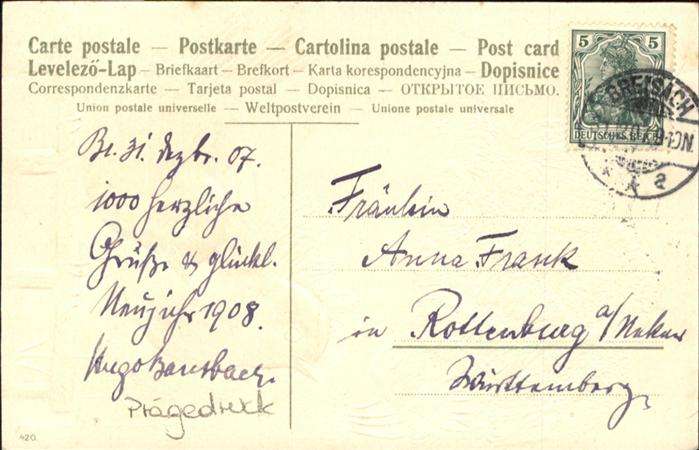 Carte postale — Postkarte — Cartolina postale — Post card
Levelező-Lap — Briefkaart — Brefkort — Karta korespondencyjna — Dopisnice
Correspondenzkarte — Tarjeta postal — Dopisnica — ОТКРЫТОЕ ПИСЬМО.
Union postale universelle — Weltpostverein — Unione postale universale
5 5
DEUTSCHES REICH
BREISACH
Br. 31. Dezbr. 07.
1000 herzliche
Grüße & glückl.
Neujahr 1908.
Hugo
Prägedruck
Fräulein
Anna Frank
in Rottenburg a/Neckar
Württemberg.
420.